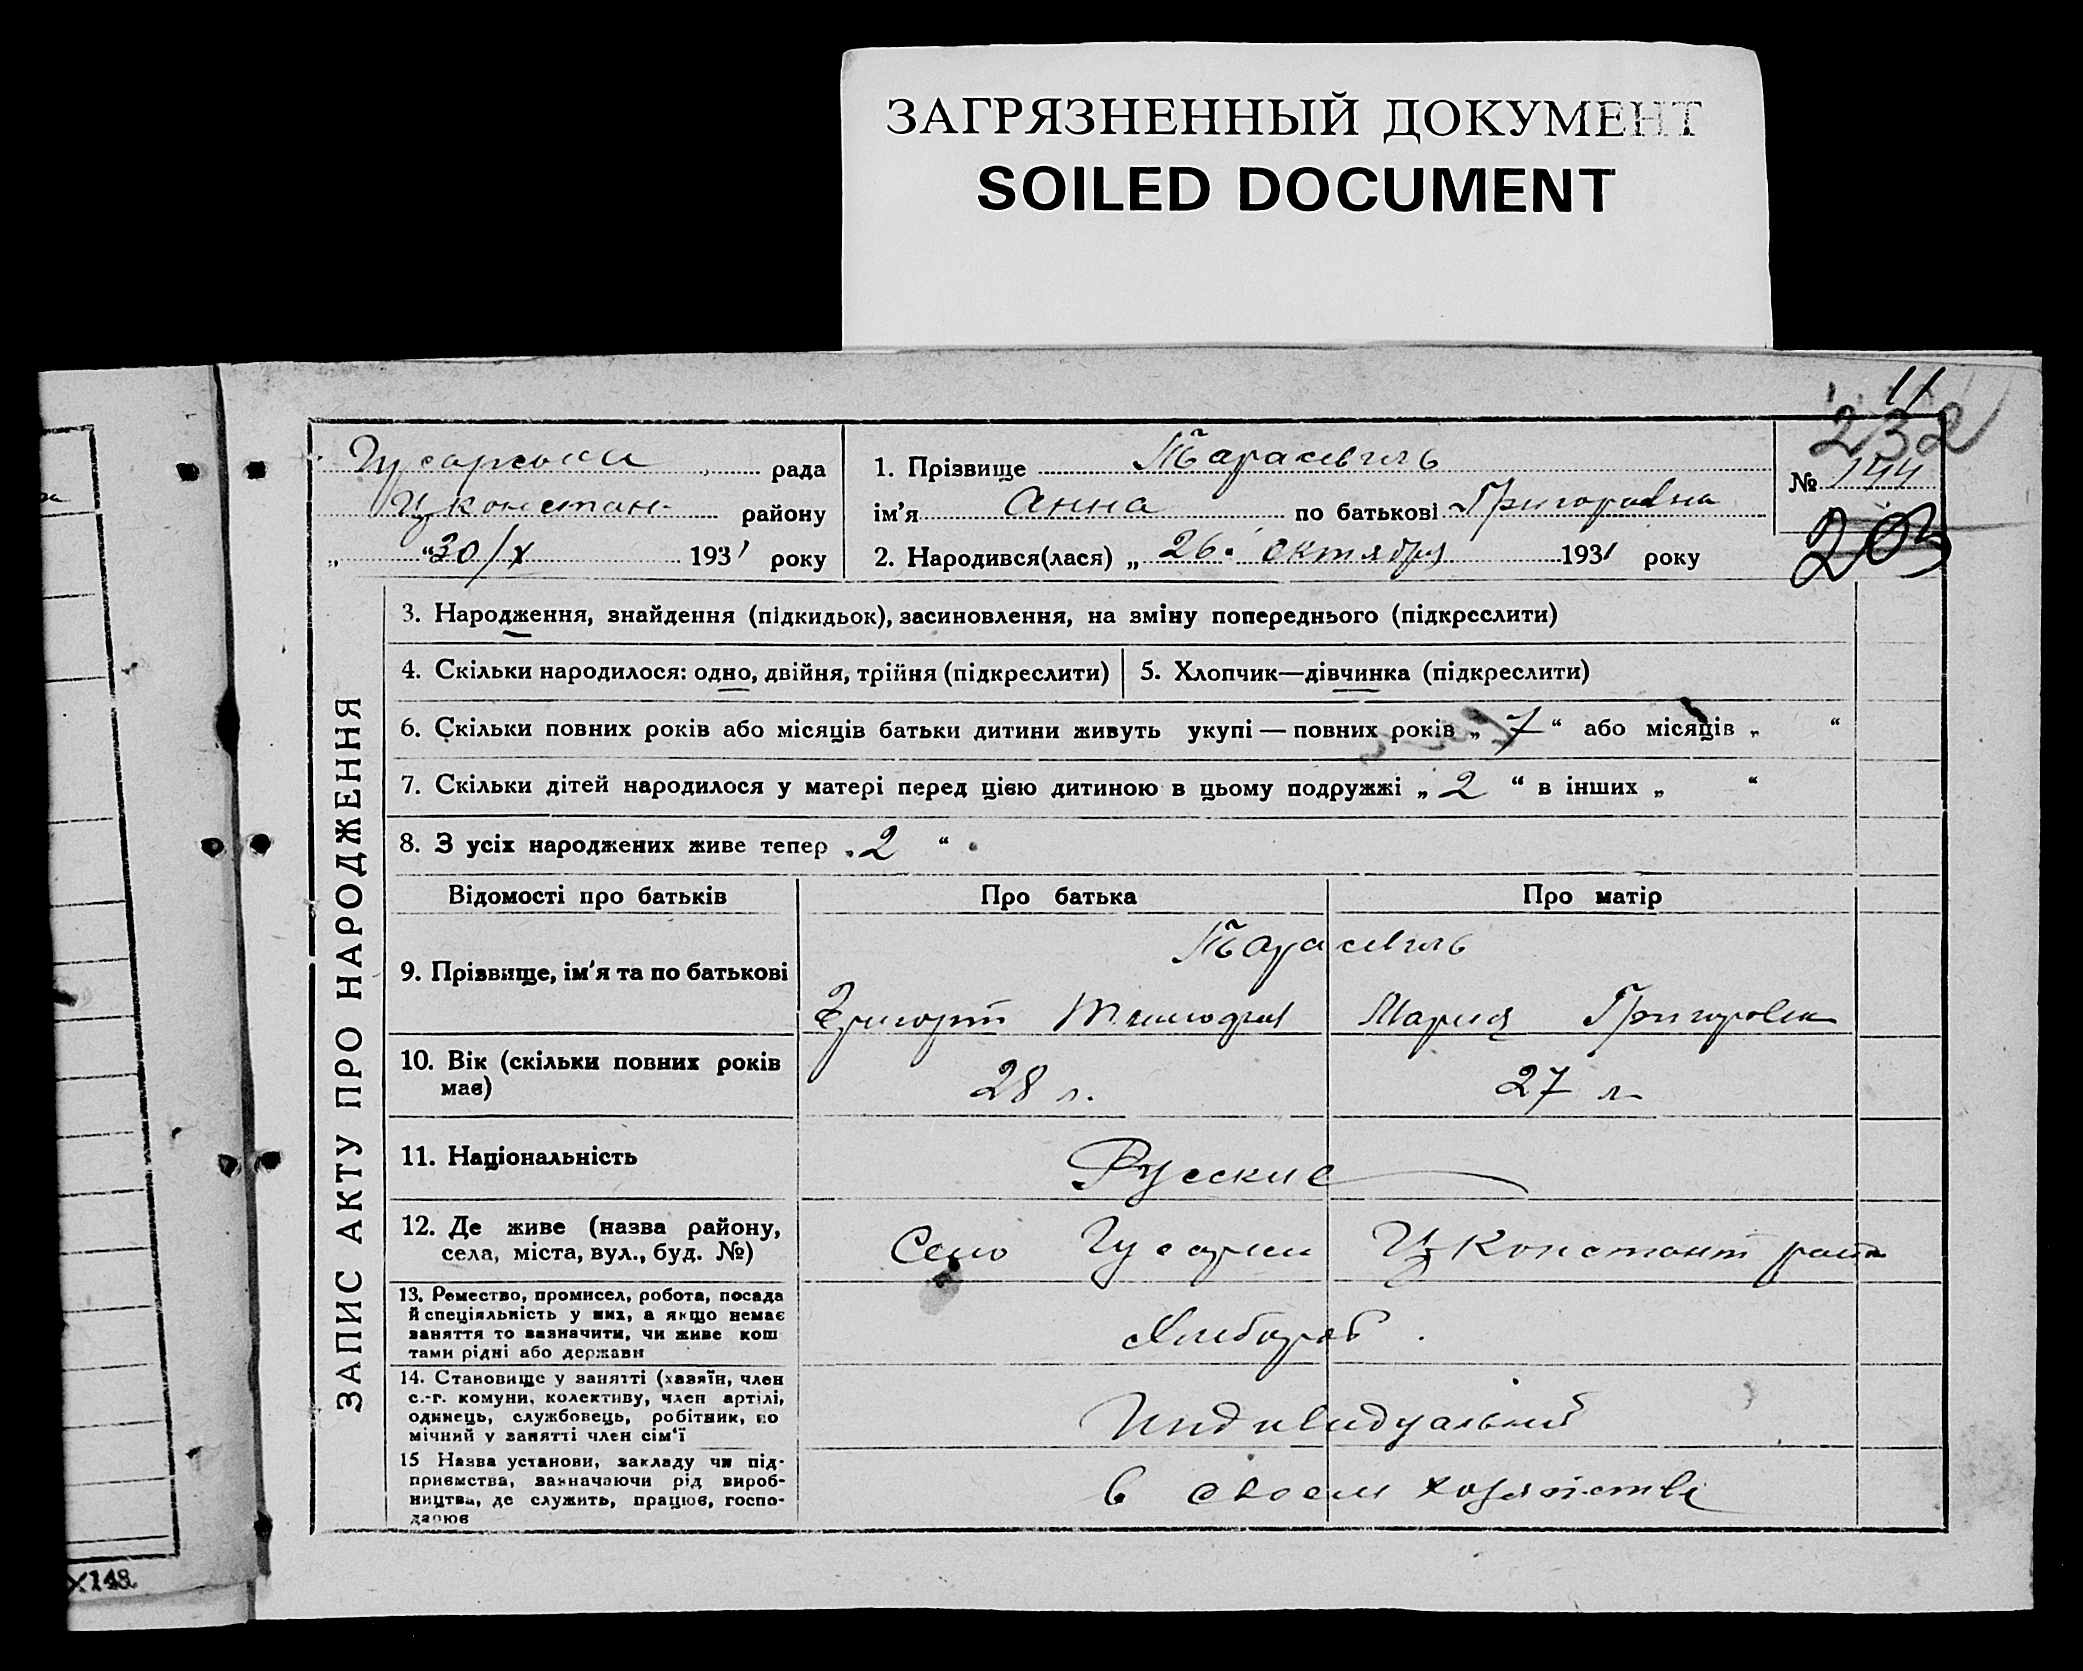 ЗАГРЯЗНЕННЫЙ ДОКУМЕНТ
SOILED DOCUMENT
11
232
рада
Цконстан. району
„ “ 30/X 1931 року
1. Прізвище Тарасевичъ
ім’я Анна по батькові Григоровна
2. Народився(лася) „ 26. октября 1931 року
№ 144
203
ЗАПИС АКТУ ПРО НАРОДЖЕННЯ
3. Народження, знайдення (підкидьок), засиновлення, на зміну попереднього (підкреслити)
4. Скільки народилося: одно, двійня, трійня (підкреслити)
5. Хлопчик—дівчинка (підкреслити)
6. Скільки повних років або місяців батьки дитини живуть укупі — повних років „ 7 “ або місяців „ “
7. Скільки дітей народилося у матері перед цією дитиною в цьому подружжі „ 2 “ в інших „ “
8. З усіх народжених живе тепер „ 2 “
Відомості про батьків
Про батька
Про матір
9. Прізвище, ім’я та по батькові
Тарасевичъ
Григорий
Мария Григоровн
10. Вік (скільки повних років
має)
28 л.
27 л.
11. Національність
Русские
12. Де живе (назва району,
села, міста, вул., буд. №)
Село Гусарки Цконстант район
13. Ремество, промисел, робота, посада
й спеціяльність у них, а якщо немає
заняття то зазначити, чи живе кош
тами рідні або держави
Хлибороб.
14. Становище у занятті (хазяїн, член
с.-г. комуни, колективу, член артілі,
одинець, службовець, робітник, по
мічний у занятті член сім’ї
Индивидуальный
15 Назва установи, закладу чи під-
приємства, зазначаючи рід вироб-
ництва, де служить, працює, госпо-
дарює
в своем хозяйстве
X148